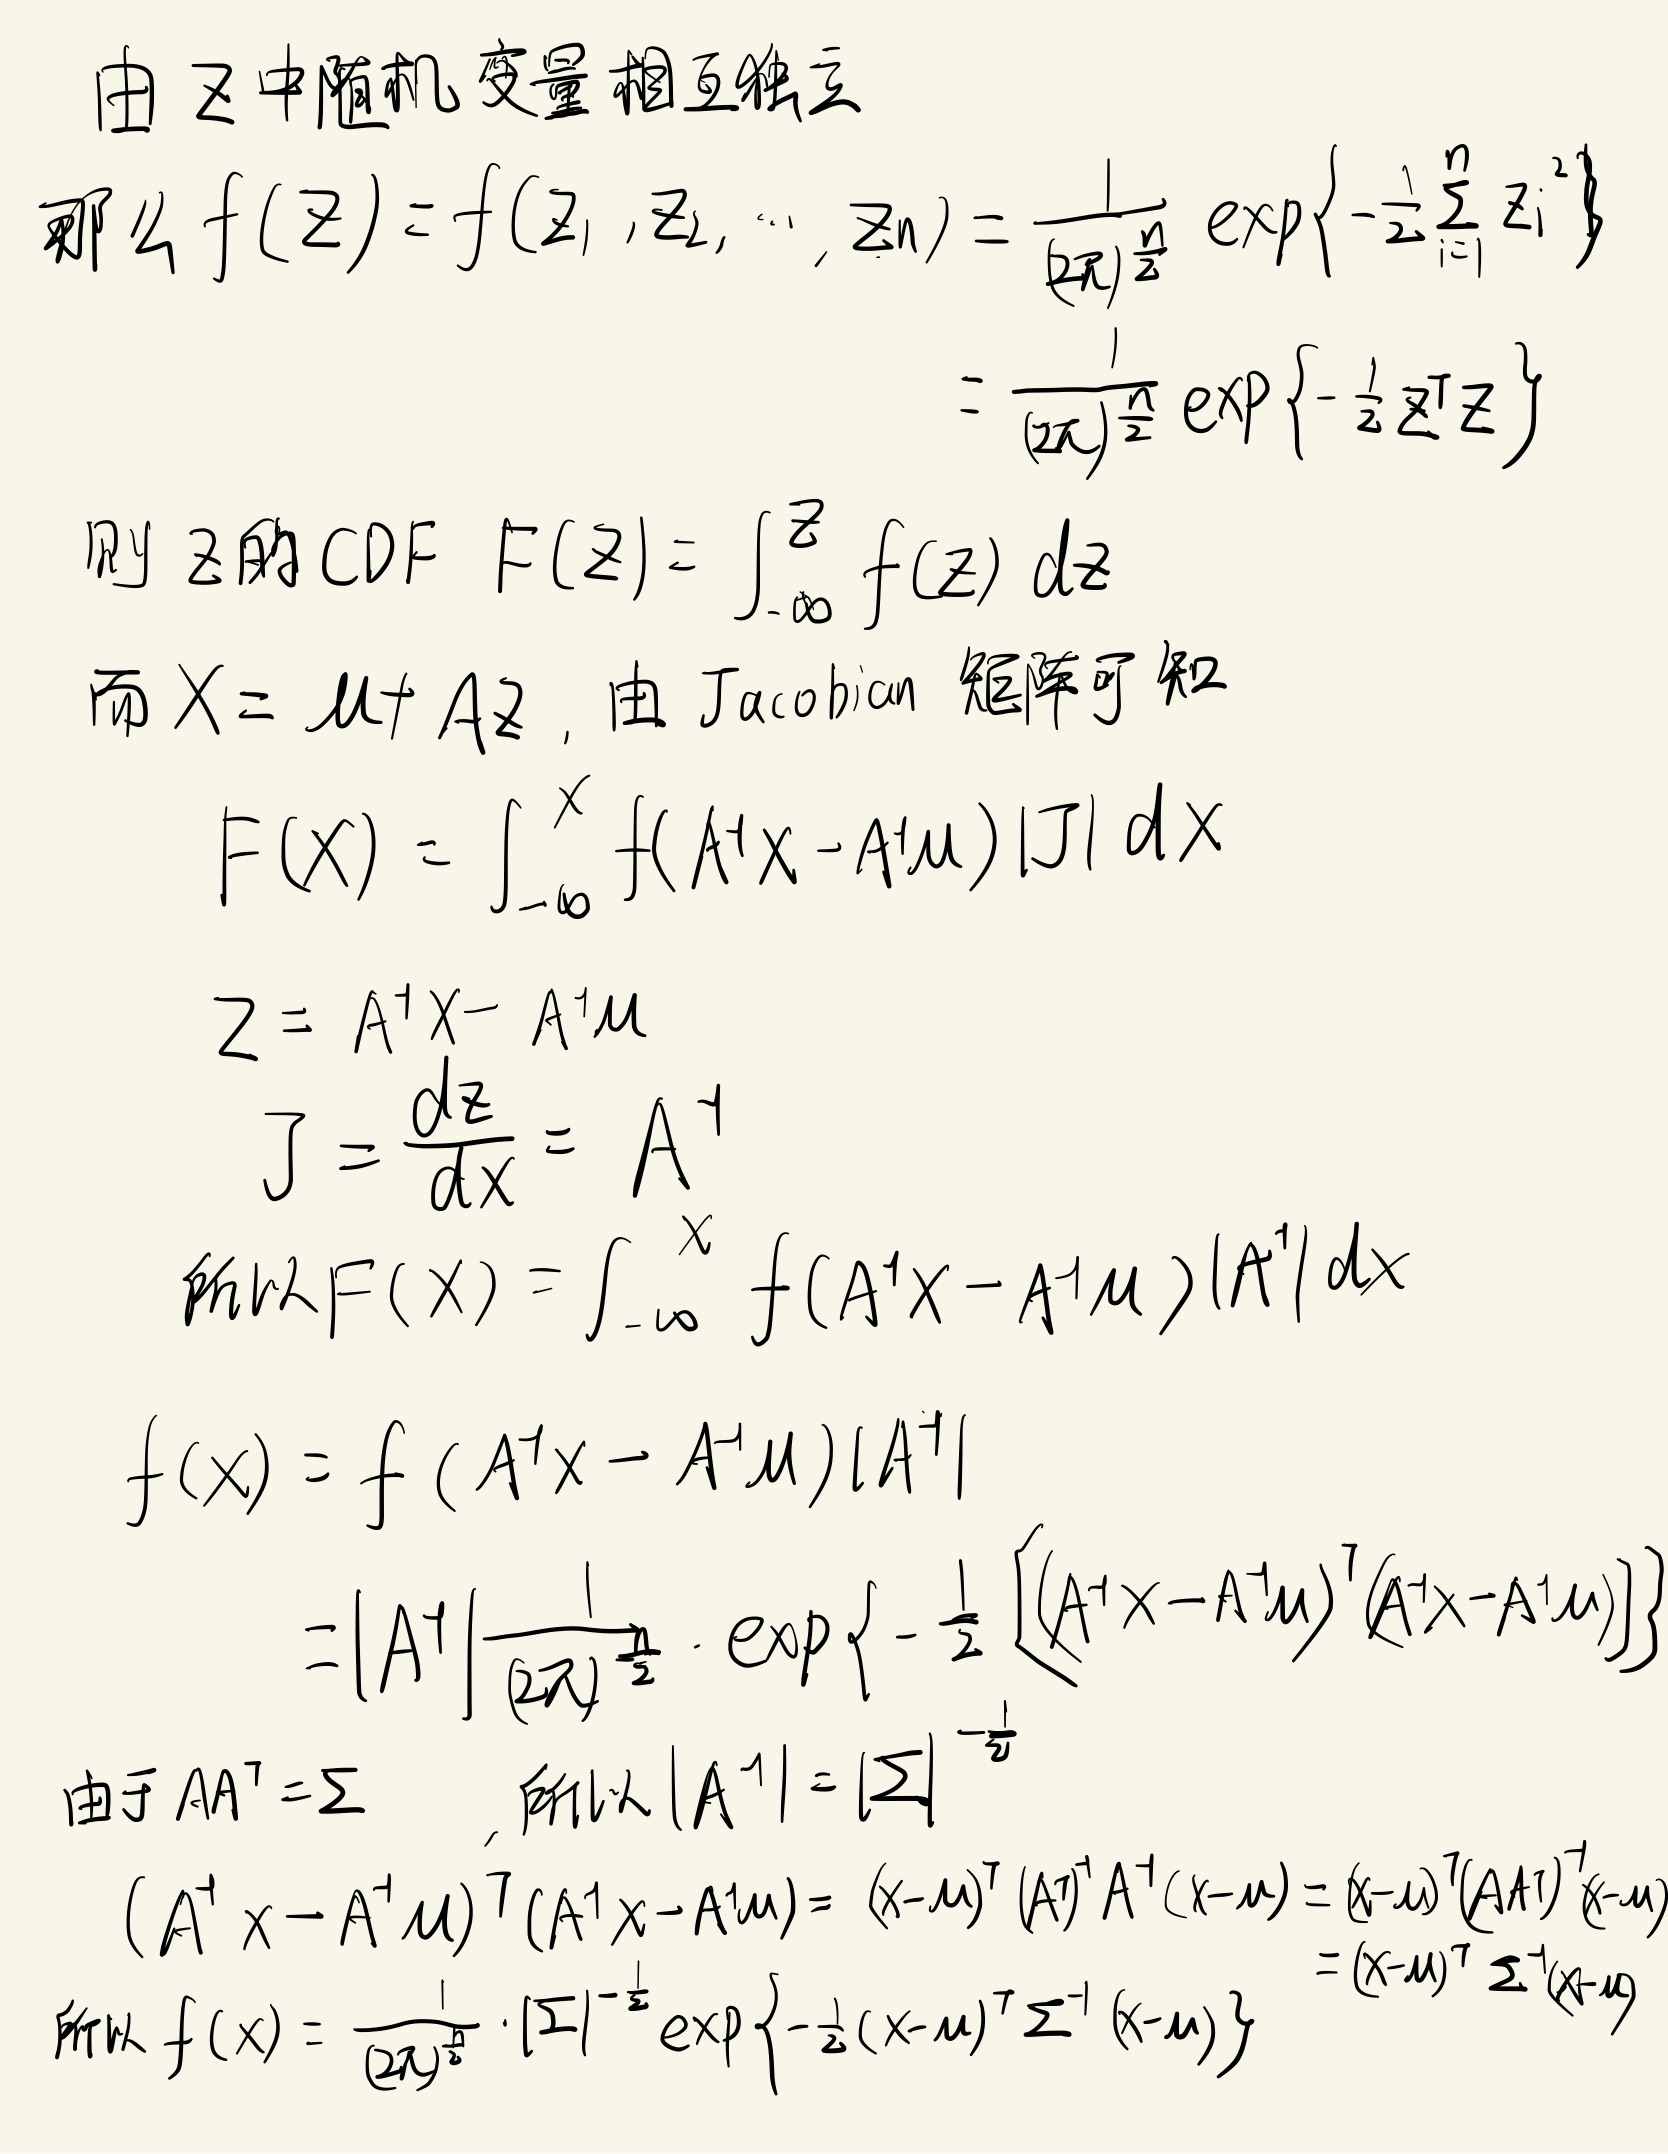 由 Z 中随机变量相互独立
那么 f(Z) = f(Z₁, Z₂, ⋯, Zn) = 1/(2π)^(n/2) exp{-1/2 ∑_{i=1}^{n} Zi²}
= 1/(2π)^(n/2) exp{-1/2 Z^T Z}
则 Z的CDF F(Z) = ∫_{-∞}^{Z} f(Z) dz
而 X = μ + AZ, 由 Jacobian 矩阵可知
F(X) = ∫_{-∞}^{X} f(A⁻¹X - A⁻¹μ) |J| dX
Z = A⁻¹X - A⁻¹μ
J = dz/dx = A⁻¹
所以 F(X) = ∫_{-∞}^{X} f(A⁻¹X - A⁻¹μ) |A⁻¹| dx
f(x) = f(A⁻¹x - A⁻¹μ) |A⁻¹|
= |A⁻¹| 1/(2π)^(n/2) · exp{-1/2 [(A⁻¹x - A⁻¹μ)^T (A⁻¹x - A⁻¹μ)]}
由于 AA^T = Σ, 所以 |A⁻¹| = |Σ|^(-1/2)
(A⁻¹x - A⁻¹μ)^T (A⁻¹x - A⁻¹μ) = (x-μ)^T (A^T)⁻¹ A⁻¹ (x-μ) = (x-μ)^T (AA^T)⁻¹ (x-μ)
= (x-μ)^T Σ⁻¹ (x-μ)
所以 f(x) = 1/(2π)^(n/2) · |Σ|^(-1/2) exp{-1/2 (x-μ)^T Σ⁻¹ (x-μ)}